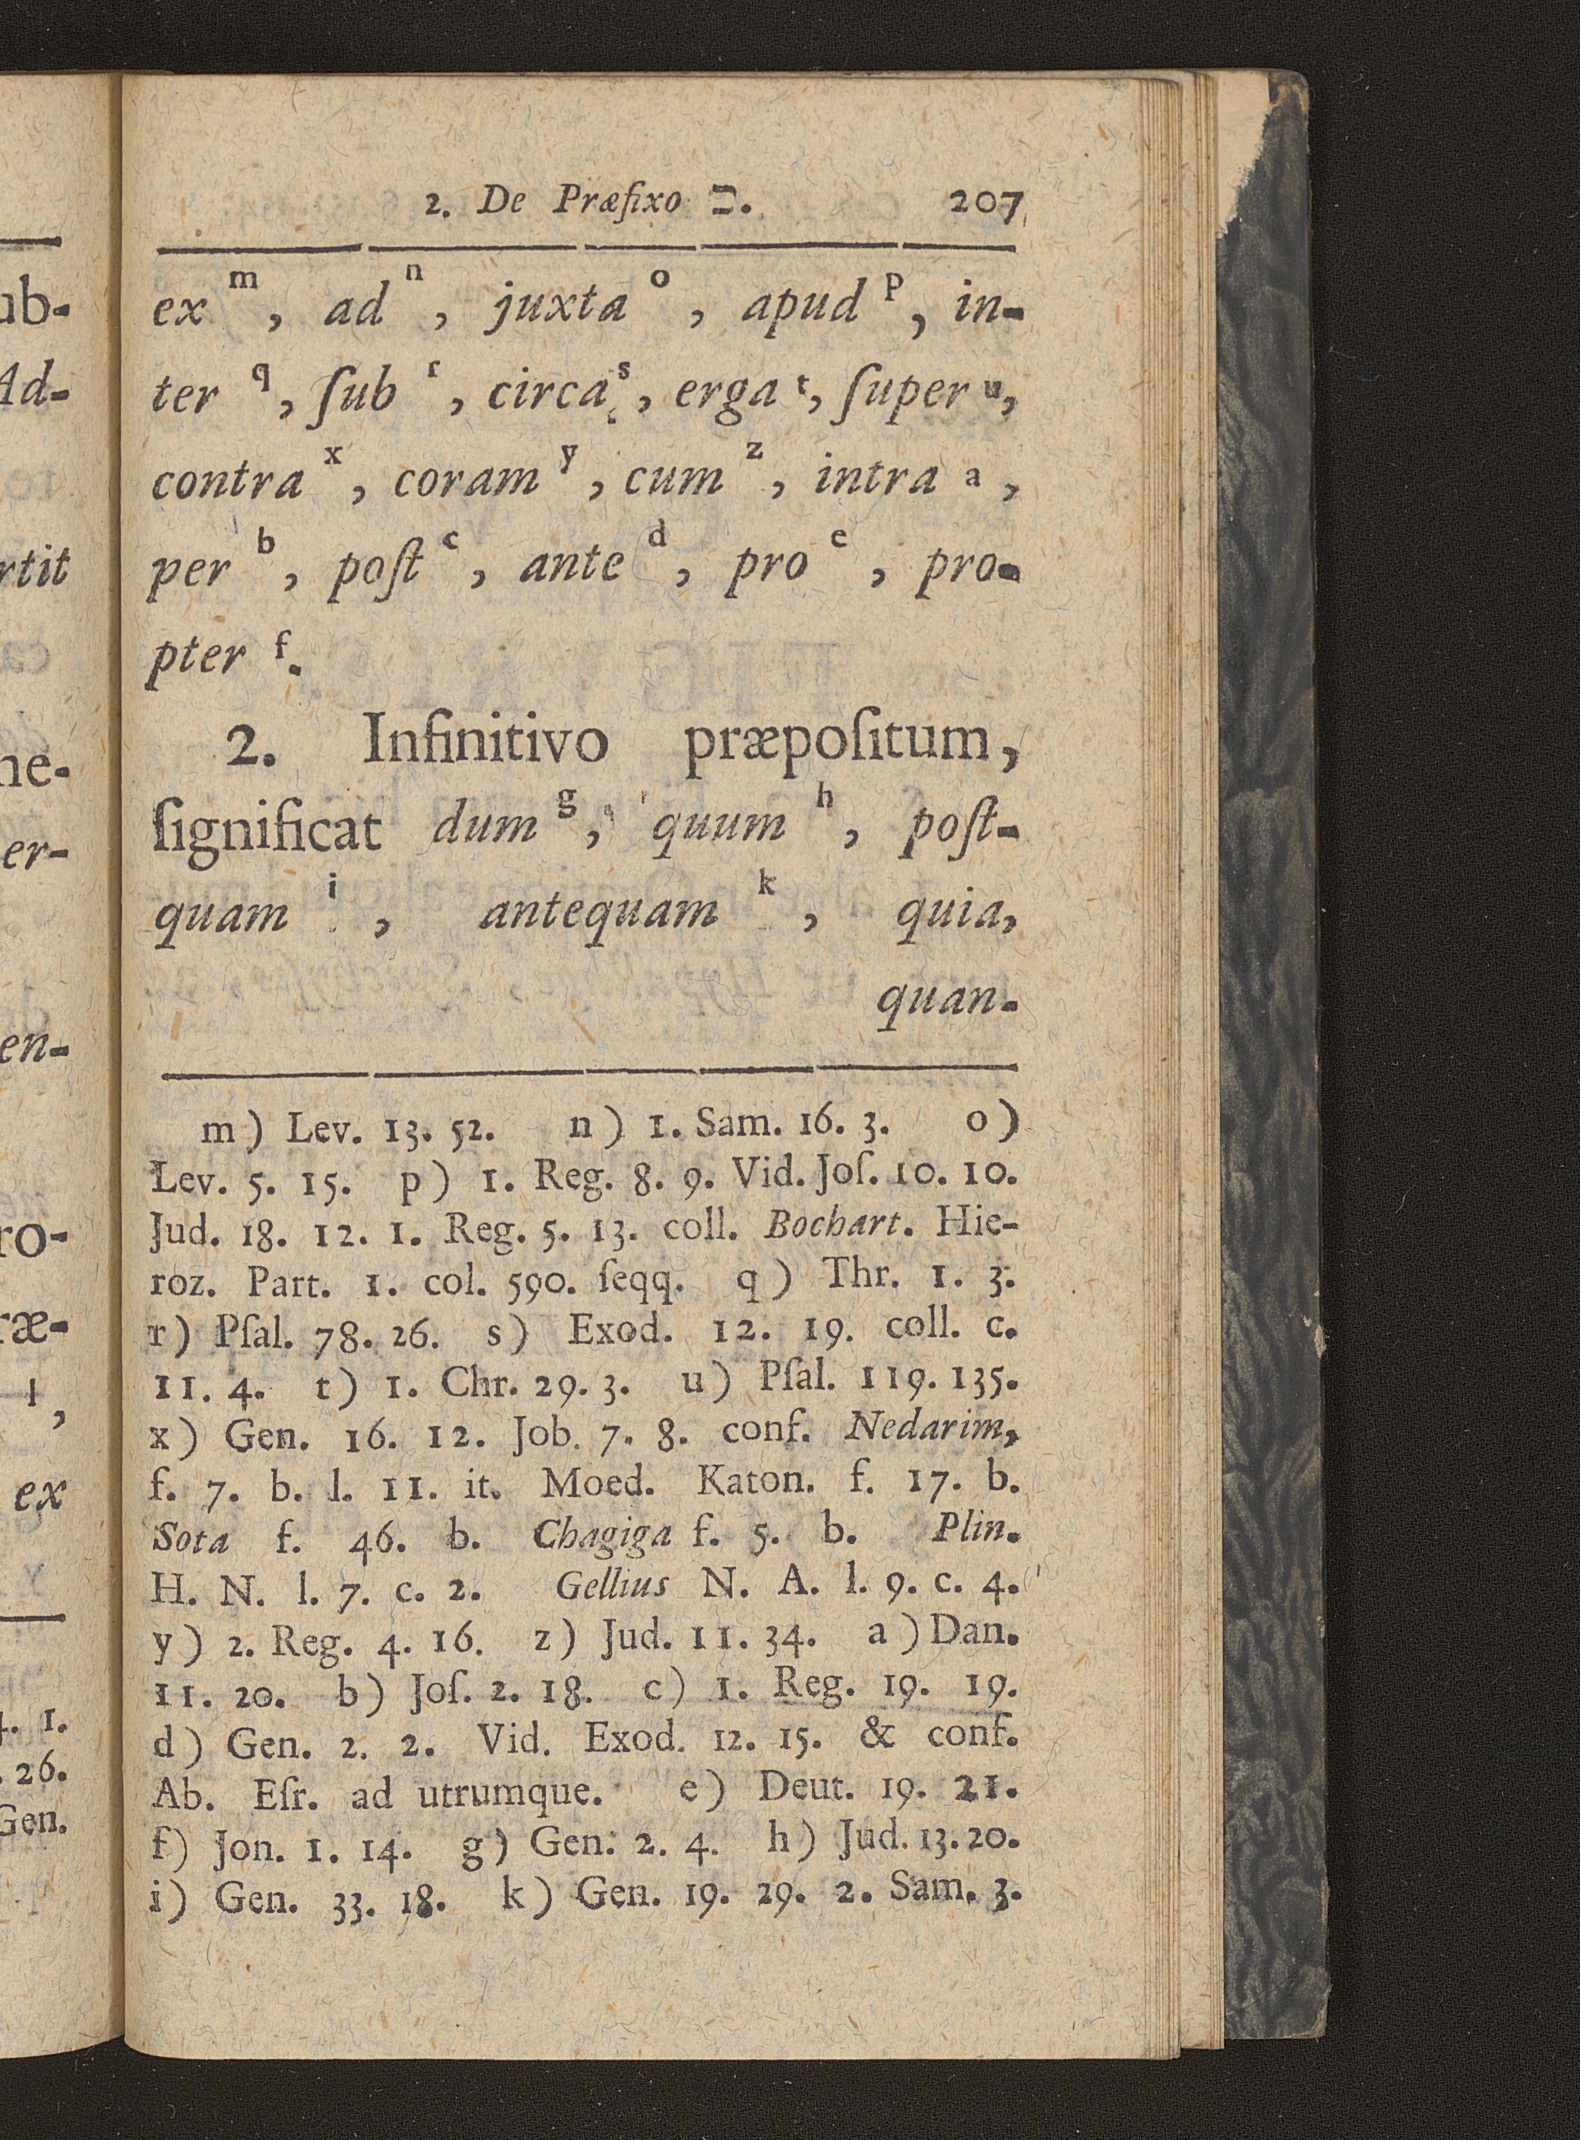 2. De Præfixo ב. 207
ex m, ad n, juxta o, apud p, in-
ter q, ſub r, circa s, erga t, ſuper u,
contra x, coram y, cum z, intra a,
per b, poſt c, ante d, pro e, pro-
pter f.
2. Infinitivo præpoſitum,
ſignificat dum g, quum h, poſt-
quam i, antequam k, quia,
quan-
m) Lev. 13. 52. n) 1. Sam. 16. 3. o)
Lev. 5. 15. p) 1. Reg. 8. 9. Vid. Joſ. 10. 10.
Jud. 18. 12. 1. Reg. 5. 13. coll. Bochart. Hie-
roz. Part. 1. col. 590. ſeqq. q) Thr. 1. 3.
r) Pſal. 78. 26. s) Exod. 12. 19. coll. c.
11. 4. t) 1. Chr. 29. 3. u) Pſal. 119. 135.
x) Gen. 16. 12. Job. 7. 8. conf. Nedarim,
f. 7. b. l. 11. it. Moed. Katon. f. 17. b.
Sota f. 46. b. Chagiga f. 5. b. Plin.
H. N. l. 7. c. 2. Gellius N. A. l. 9. c. 4.
y) 2. Reg. 4. 16. z) Jud. 11. 34. a) Dan.
11. 20. b) Joſ. 2. 18. c) 1. Reg. 19. 19.
d) Gen. 2. 2. Vid. Exod. 12. 15. & conf.
Ab. Eſr. ad utrumque. e) Deut. 19. 21.
f) Jon. 1. 14. g) Gen. 2. 4. h) Jud. 13. 20.
i) Gen. 33. 18. k) Gen. 19. 29. 2. Sam. 3.